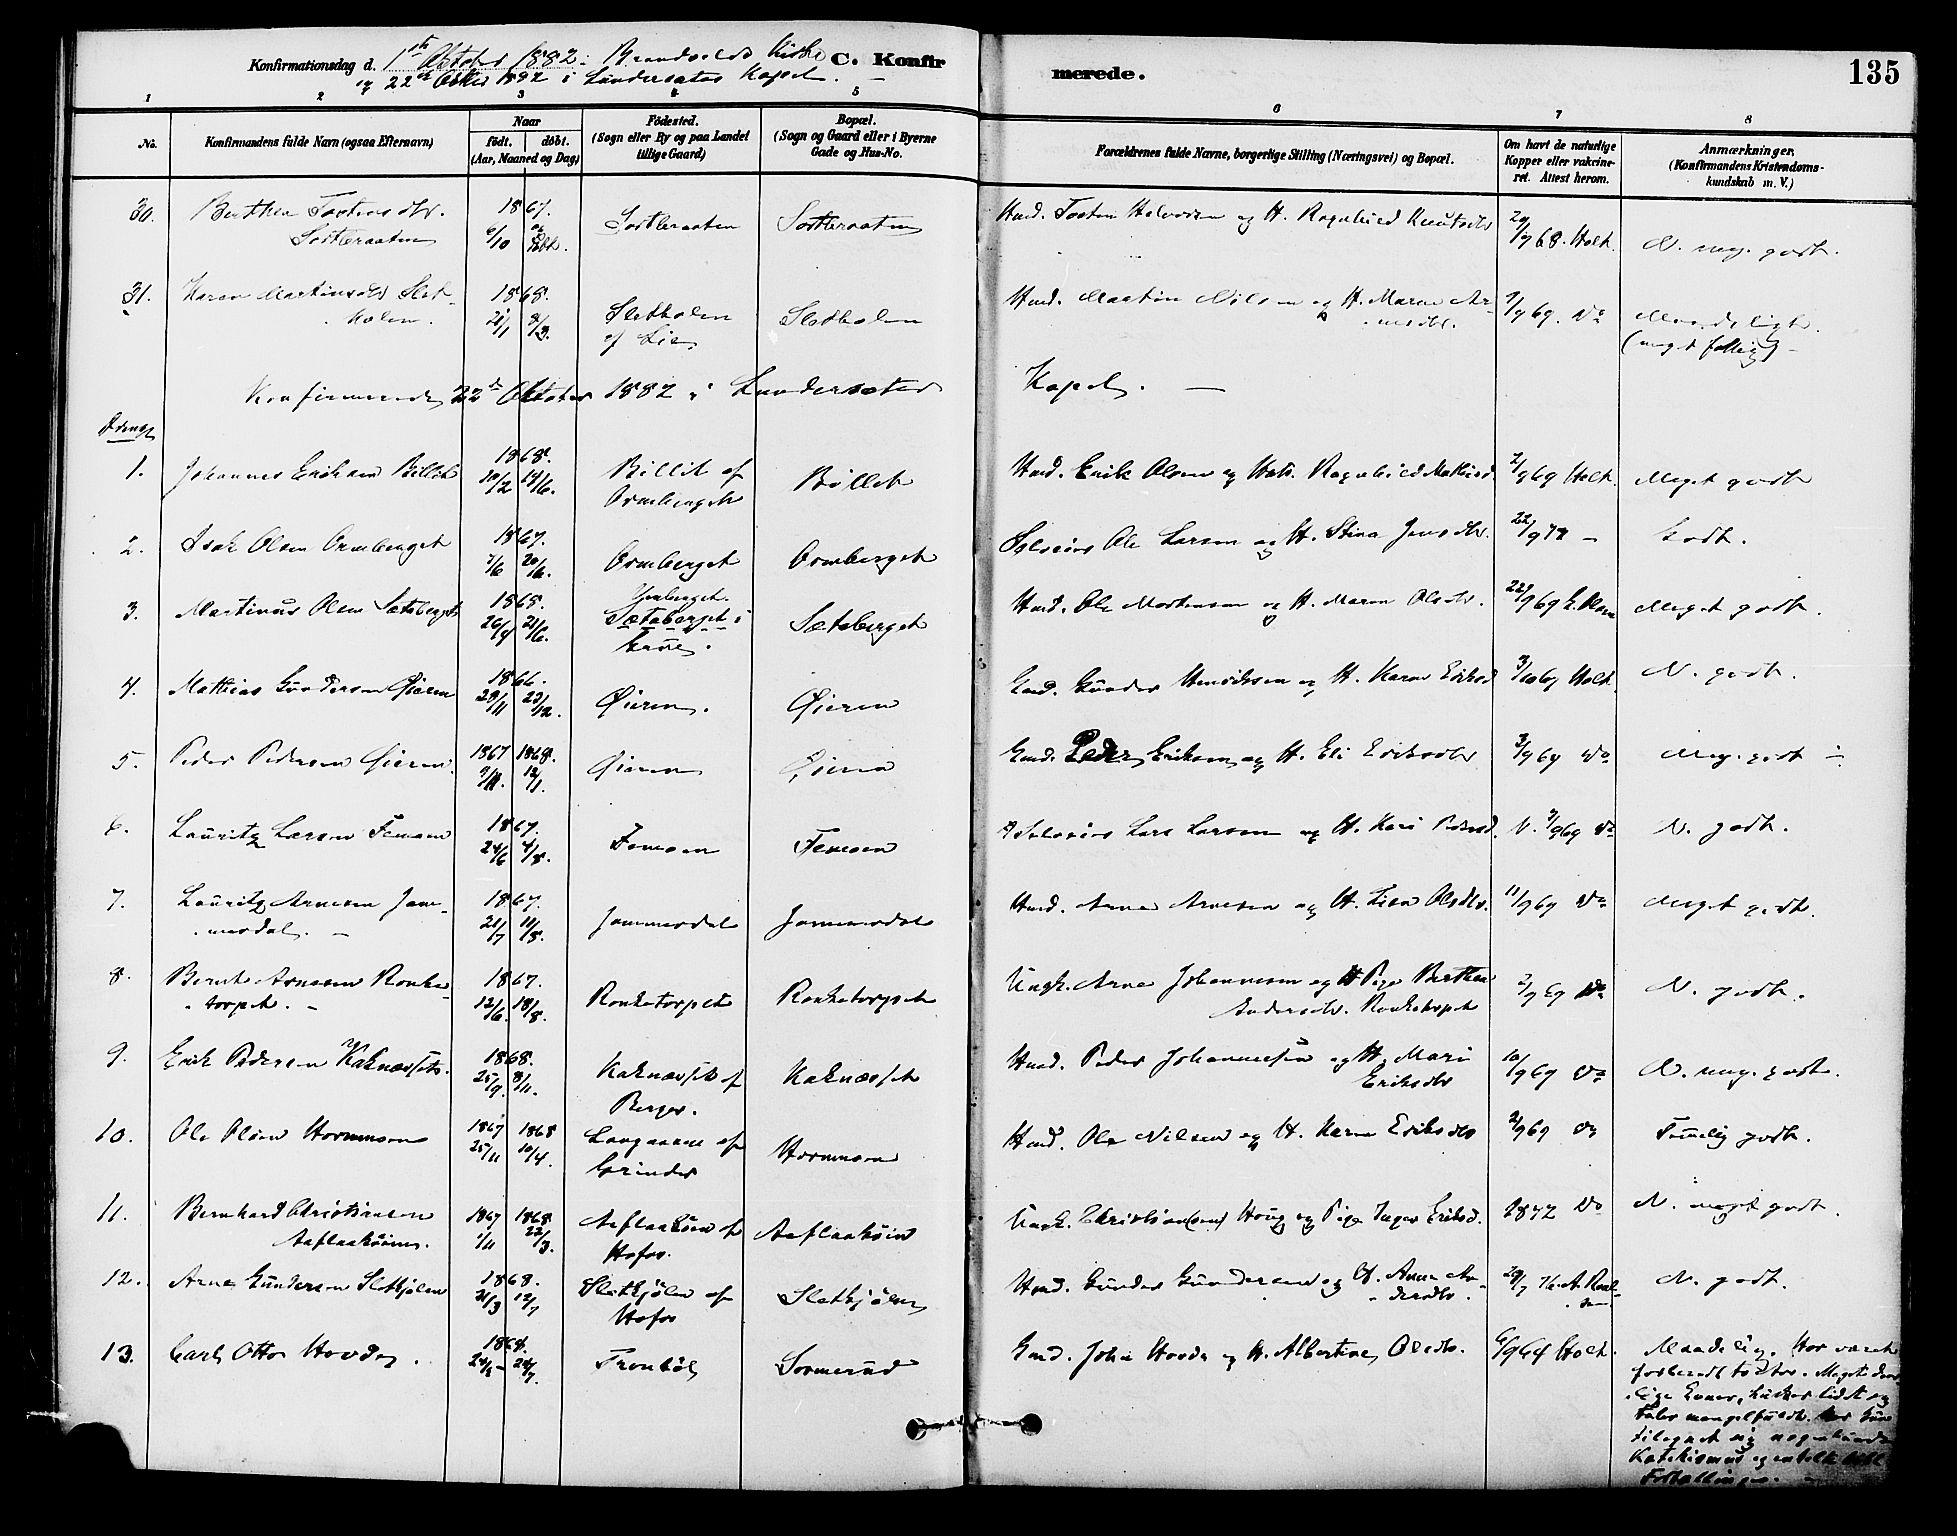 Konfirmationsdag d. 1ste Oktober 1882 i Brandvolds Kirke C. Konfirmerede. 135
og 22de Oktbr 1882 i Lundersæter Kapel.
1 2 3 4 5 6 7 8
No.
Konfirmandens fulde Navn (ogsaa Efternavn)
Naar
födt. döbt.
(Aar, Maaned og Dag)
Födested.
(Sogn eller By og paa Landet
tillige Gaard)
Bopæl.
(Sogn og Gaard eller i Byerne
Gade og Hus-No.
Forældrenes fulde Navne, borgerlige Stilling (Næringsvei) og Bopæl.
Om havt de naturlige
Kopper eller vakcine-
ret. Attest herom.
Anmærkninger.
(Konfirmandens Kristendoms-
kundskab m. V.)
30. Berthea Tostensdtr. 1867. 6/10 Hmd. Tosten Halvorsen og H. Ragnhild Knutsdtr 68. Holt. N. meg. godt.
31. Karen Martinsdtr Slet-
holen. 1868. 21/1 8/3. Sletholen af Lie Sletholen Hmd. Martin Nilsen og H. Maren Ar-
nesdtr. 9/9 69. Do Maadeligt.
Konfirmerede 22de Oktober 1882 i Lundersæter Kapel.
Drenge
1. Johannes Eriksen Billit 1868. 10/2 14/6. Billit af Ormberget Billet Hmd. Erik Olsen og Hstr. Ragnhild Mathisd. 2/9 69 Holt. Meget godt
2. Isak Olsen Ormberget 1867. 7/6 20/6. Ormberget Ormberget Selveier Ole Larsen og H. Stina Jensdtr. 22/9 77 - Godt.
3. Martinus Olsen Sætaberget 1868. 26/4 21/6. Sætaberget i Grue. Sætaberget Hmd. Ole Mortensen og H. Maren Olsdtr. 22/9 69 Meget godt.
4. Mathias Gundersen Øieren 1866. 28/11 23/12. Øieren. Øieren Gmd. Gunder Henriksen og H. Karen Eriksd 3/10 69 Holt. N. godt.
5. Peder Pedersen Øieren. 1867 1868. 12/1. Øieren Øieren Gmd. Peder Eriksen og H. Eli Eriksdtr 3/9 69 Do Meg. godt
6. Lauritz Larsen Femoen 1867. 24/6 4/8. Femoen Femoen Selveier Lars Larsen og H. Kari Pedersd. N. 3/9 69 Do N. godt.
7. Lauritz Arnesen Jam-
merdal. 1867. 21/7 11/8. Jammerdal Jammerdal Hmd. Arne Arnesen og H. Lisa Olsdtr. 11/9 69 Do Meget godt.
8. Bernt Arnesen Ronke-
torpet. 1867. 12/6. 18/8. Ronketorpet Ronketorpet Ungk. Arne Johannesen og Pige Berthea
Andersdtr. Ronketorpet 2/9 69 Do N. godt.
9. Erik Pedersen Kaknæsset. 1868. 25/9. 8/11. Kaknæsset af Berger. Kaknæsset Hmd. Peder Johannesen og H. Mari
Eriksdtr 10/9 69 Do N. meg. godt.
10. Ole Olsen Hornmoen 1867 25/11 1868 10/4. af Grinder Hornmoen Hmd. Ole Nilsen og H. Karen Eriksdtr 2/9 69 Do Temelig godt.
11. Bernhard Christiansen
Aaflaakøien. 1867 1/11 1868. 22/3. Aaflaakøien af Hofos. Aaflaakøien Ungk. Christian(sen) Houg og Pige Inger Eriksd. 1872 Do N. meget godt.
12. Arne Gundersen Sletkjølen 1868. 21/3 12/7 Sletkjølen af Hofos Sletkjølen Hmd. Gunder Gundersen og H. Anne An-
dersdtr. N. godt.
13. Carl Otto Hovde. 1864. Sormerud Gmd. John Hovde og H. Albertine Olsdtr. 6/9 64 Holt. Maadelig. Har været
forberedt to Aar. Meget daar-
lige Evner, husker lidet og
Taler mangelfuldt.
tilegnet sig
Katekismus og enkelte bibl.
Fortællinger.